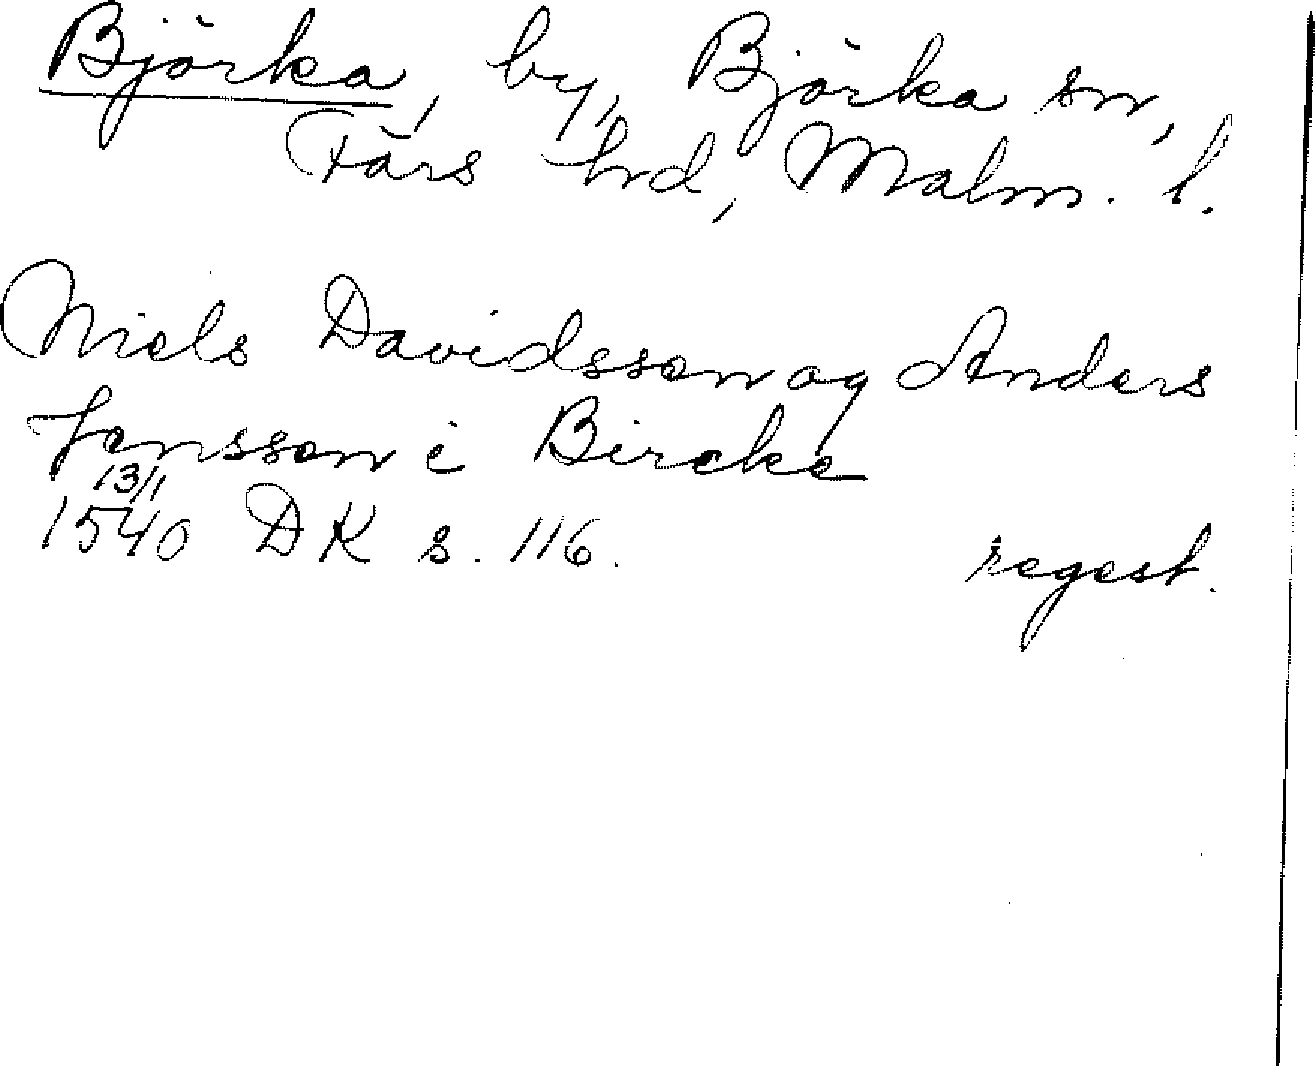 Björka, by, Björka sn,
Färs hrd, Malm. l.
Niels Davidsson og Anders
Jensson i Bircke
13/1
1540 DK s. 116. regest.